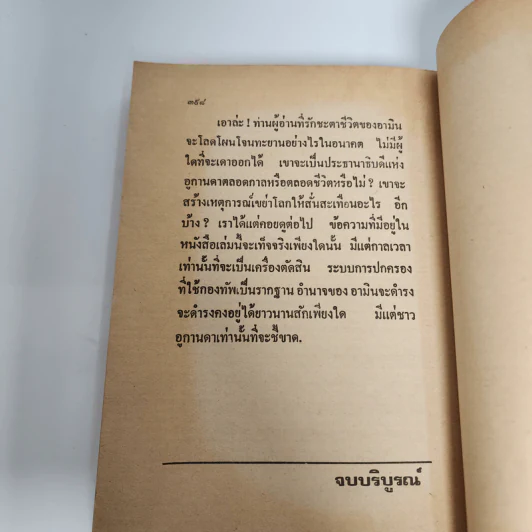 ๓๙๘
เอาล่ะ ! ท่านผู้อ่านที่รักชะตาชีวิตของอามิน
จะโลดโผนโจนทะยานอย่างไรในอนาคต ไม่มีผู้
ใดที่จะเดาออกได้ เขาจะเป็นประธานาธิบดีแห่ง
อูกานดาตลอดกาลหรือตลอดชีวิตหรือไม่ ? เขาจะ
สร้างเหตุการณ์เขย่าโลกให้สั่นสะเทือนอะไร อีก
บ้าง ? เราได้แต่คอยดูต่อไป ข้อความที่มีอยู่ใน
หนังสือเล่มนี้จะเท็จจริงเพียงใดนั้น มีแต่กาลเวลา
เท่านั้นที่จะเป็นเครื่องตัดสิน ระบบการปกครอง
ที่ใช้กองทัพเป็นรากฐาน อำนาจของ อามินจะดำรง
จะดำรงคงอยู่ได้ยาวนานสักเพียงใด มีแต่ชาว
อูกานดาเท่านั้นที่จะชี้ขาด.
จบบริบูรณ์